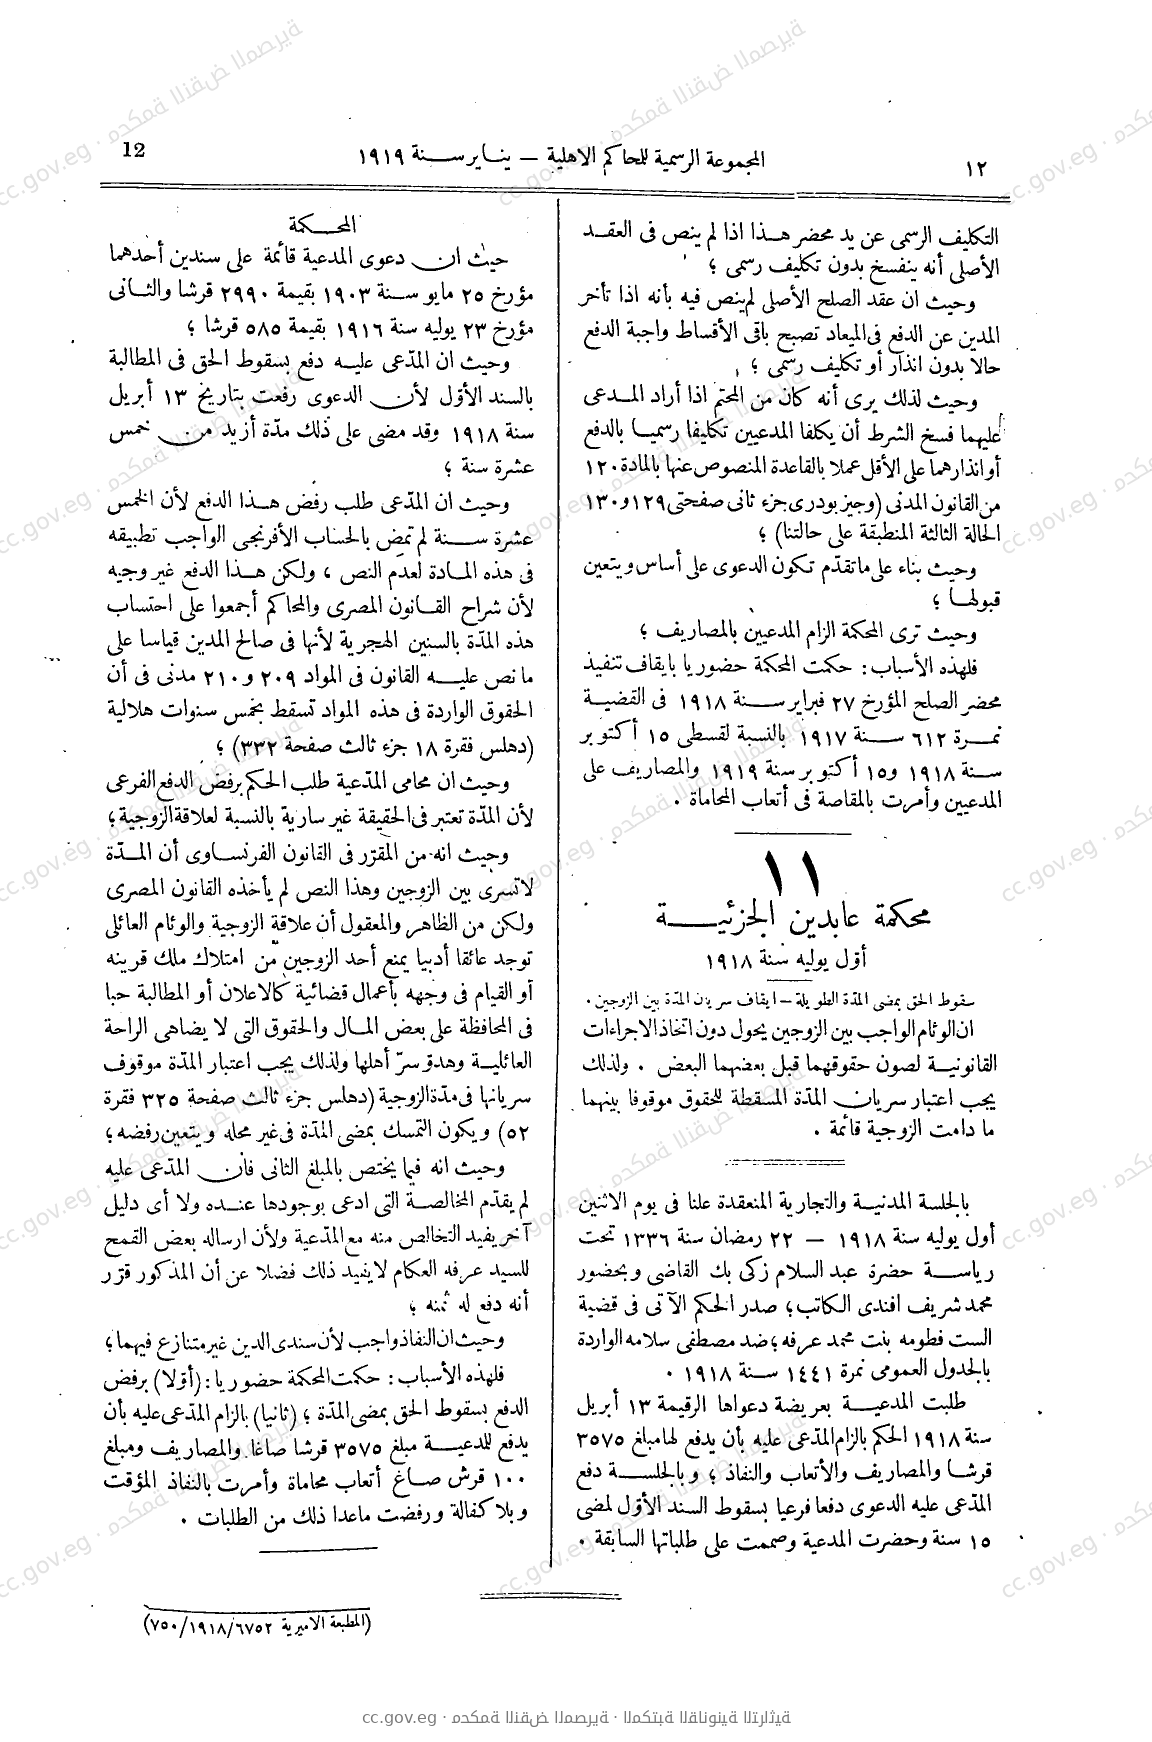 ١٢
المجموعة الرسمية للمحاكم الاهلية — يناير سنة ١٩١٩
12
التكليف الرسمى عن يد محضر هذا اذا لم ينص فى العقد
الأصلى أنه ينفسخ بدون تكليف رسمى ؛
وحيث ان عقد الصلح الأصلى لم ينص فيه بأنه اذا تأخر
المدين عن الدفع فى الميعاد تصبح باقى الأقساط واجبة الدفع
حالا بدون انذار أو تكليف رسمى ؛
وحيث لذلك يرى أنه كان من المحتم اذا أراد المدعى
عليهما فسخ الشرط أن يكلفا المدعيين تكليفا رسميا بالدفع
أو انذارهما على الأقل عملا بالقاعدة المنصوص عنها بالمادة ١٢٠
من القانون المدنى (وجيز بودرى جزء ثانى صفحتى ١٢٩ و ١٣٠
الحالة الثالثة المنطبقة على حالتنا) ؛
وحيث بناء على ما تقدم تكون الدعوى على أساس ويتعين
قبولها ؛
وحيث ترى المحكمة الزام المدعيين بالمصاريف ؛
فلهذه الأسباب : حكمت المحكمة حضوريا بايقاف تنفيذ
محضر الصلح المؤرخ ٢٧ فبراير سنة ١٩١٨ فى القضية
نمرة ٦١٢ سنة ١٩١٧ بالنسبة لقسطى ١٥ أكتوبر
سنة ١٩١٨ و١٥ أكتوبر سنة ١٩١٩ والمصاريف على
المدعيين وأمرت بالمقاصة فى أتعاب المحاماة .
١١
محكمة عابدين الجزئية
أوّل يوليه سنة ١٩١٨
سقوط الحق بمضى المدة الطويلة – ايقاف سريان المدة بين الزوجين .
ان الوئام الواجب بين الزوجين يحول دون اتخاذ الاجراءات
القانونية لصون حقوقهما قبل بعضهما البعض . ولذلك
يجب اعتبار سريان المدّة المسقطة للحقوق موقوفا بينهما
ما دامت الزوجية قائمة .
بالجلسة المدنية والتجارية المنعقدة علنا فى يوم الاثنين
أول يوليه سنة ١٩١٨ — ٢٢ رمضان سنة ١٣٣٦ تحت
رياسة حضرة عبد السلام زكى بك القاضى وبحضور
محمد شريف افندى الكاتب ؛ صدر الحكم الآتى فى قضية
الست فطومه بنت محمد عرفه ؛ ضد مصطفى سلامه الواردة
بالجدول العمومى نمرة ١٤٤١ سنة ١٩١٨ .
طلبت المدعية بعريضة دعواها الرقيمة ١٣ أبريل
سنة ١٩١٨ الحكم بالزام المدّعى عليه بأن يدفع لها مبلغ ٣٥٧٥
قرشا والمصاريف والأتعاب والنفاذ ؛ وبالجلسة دفع
المدّعى عليه الدعوى دفعا فرعيا بسقوط السند الأوّل لمضى
١٥ سنة وحضرت المدعية وصممت على طلباتها السابقة .
المحكمة
حيث ان دعوى المدعية قائمة على سندين أحدهما
مؤرخ ٢٥ مايو سنة ١٩٠٣ بقيمة ٢٩٩٠ قرشا والثانى
مؤرخ ٢٣ يوليه سنة ١٩١٦ بقيمة ٥٨٥ قرشا ؛
وحيث ان المدّعى عليه دفع بسقوط الحق فى المطالبة
بالسند الأوّل لأن الدعوى رفعت بتاريخ ١٣ أبريل
سنة ١٩١٨ وقد مضى على ذلك مدّة أزيد من خمس
عشرة سنة ؛
وحيث ان المدّعى طلب رفض هذا الدفع لأن الخمس
عشرة سنة لم تمض بالحساب الأفرنجى الواجب تطبيقه
فى هذه المادة لعدم النص ، ولكن هذا الدفع غير وجيه
لأن شراح القانون المصرى والمحاكم أجمعوا على احتساب
هذه المدّة بالسنين الهجرية لأنها فى صالح المدين قياسا على
ما نص عليه القانون فى المواد ٢٠٩ و ٢١٠ مدنى فى أن
الحقوق الواردة فى هذه المواد تسقط بخمس سنوات هلالية
(دهلس فقرة ١٨ جزء ثالث صفحة ٣٣٢) ؛
وحيث ان محامى المدّعية طلب الحكم برفض الدفع الفرعى
لأن المدّة تعتبر فى الحقيقة غير سارية بالنسبة لعلاقة الزوجية ؛
وحيث انه من المقرّر فى القانون الفرنساوى أن المدّة
لا تسرى بين الزوجين وهذا النص لم يأخذه القانون المصرى
ولكن من الظاهر والمعقول أن علاقة الزوجية والوئام العائلى
توجد عائقا أدبيا يمنع أحد الزوجين من امتلاك ملك قرينه
أو القيام فى وجهه بأعمال قضائية كالاعلان أو المطالبة حبا
فى المحافظة على بعض المال والحقوق التى لا يضاهى الراحة
العائلية وهدوّ سرّ أهلها ولذلك يجب اعتبار المدّة موقوف
سريانها فى مدّة الزوجية (دهلس جزء ثالث صفحة ٣٢٥ فقرة
٥٢) ويكون التمسك بمضى المدّة فى غير محله ويتعين رفضه ؛
وحيث انه فيما يختص بالمبلغ الثانى فان المدّعى عليه
لم يقدّم المخالصة التى ادعى بوجودها عنده ولا أى دليل
آخر يفيد التخالص منه مع المدّعية ولأن ارساله بعض القمح
للسيد عرفه العكام لا يفيد ذلك فضلا عن أن المذكور قرّر
أنه دفع له ثمنه ؛
وحيث ان النفاذ واجب لأن سندى الدين غير متنازع فيهما ؛
فلهذه الأسباب : حكمت المحكمة حضوريا : (أوّلا) برفض
الدفع بسقوط الحق بمضى المدّة ؛ (ثانيا) بالزام المدّعى عليه بأن
يدفع للمدعية مبلغ ٣٥٧٥ قرشا صاغا والمصاريف ومبلغ
١٠٠ قرش صاغ أتعاب محاماة وأمرت بالنفاذ المؤقت
وبلا كفالة ورفضت ماعدا ذلك من الطلبات .
(المطبعة الاميرية ٦٧٥٢/١٩١٨/٧٥٠)
cc.gov.eg · محكمة النقض المصرية · المكتبة القانونية التراثية